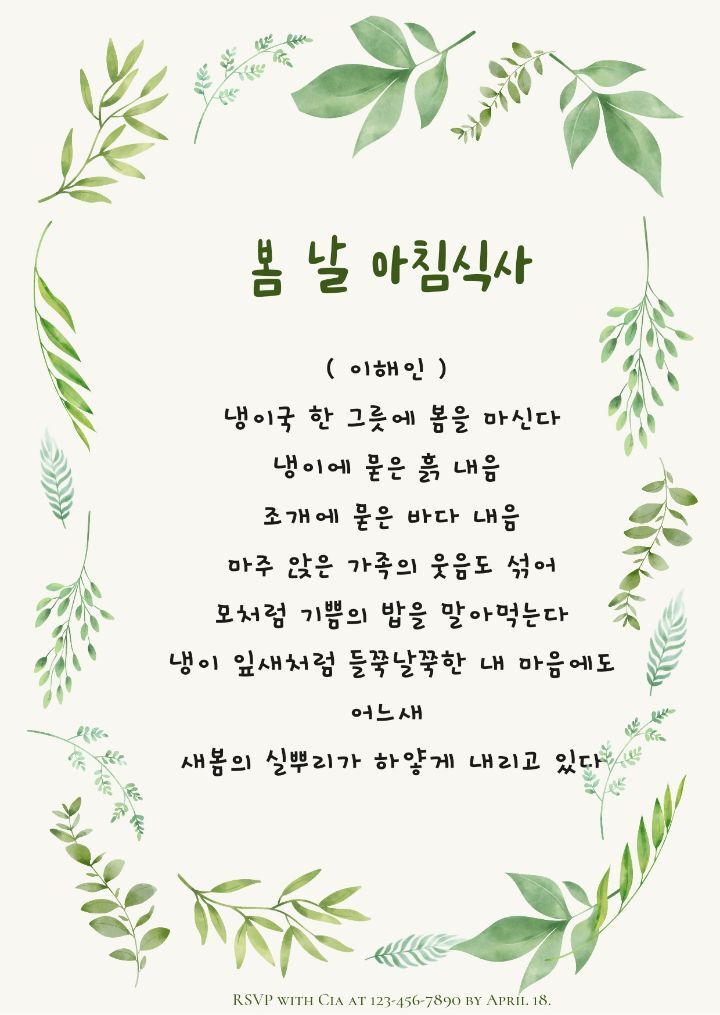 봄 날 아침식사
( 이해인 )
냉이국 한 그릇에 봄을 마신다
냉이에 묻은 흙 내음
조개에 묻은 바다 내음
마주 앉은 가족의 웃음도 섞어
모처럼 기쁨의 밥을 말아먹는다
냉이 잎새처럼 들쭉날쭉한 내 마음에도
어느새
새봄의 실뿌리가 하얗게 내리고 있다
RSVP with Cia at 123-456-7890 by April 18.